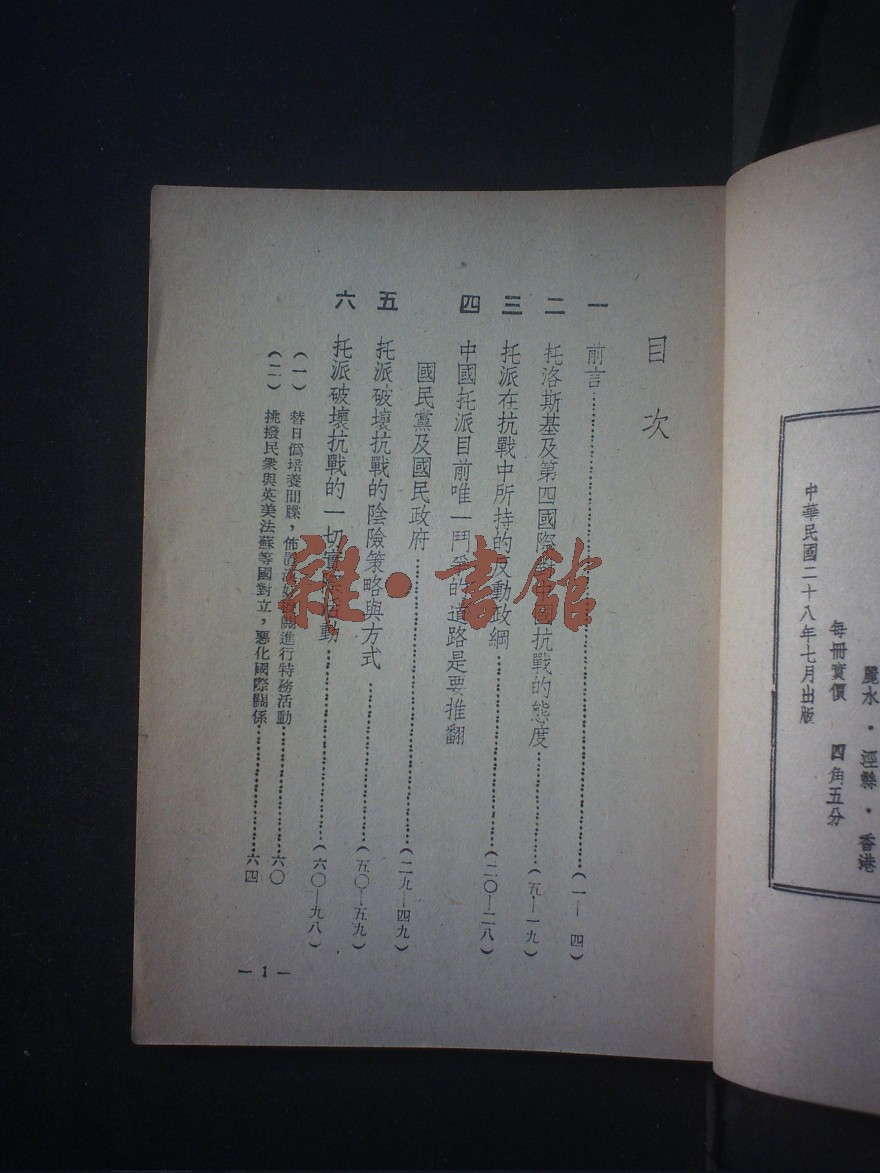 麗水·涇縣·香港
每冊實價 四角五分
中華民國二十八年七月出版
目次
一 前言……(一—四)
二 托洛斯基及第四國際對中國抗戰的態度……(五—一九)
三 托派在抗戰中所持的反動政綱……(二〇—二八)
四 中國托派目前唯一鬥爭的道路是要推翻
國民黨及國民政府……(二九—四九)
五 托派破壞抗戰的陰險策略與方式……(五〇—五九)
六 托派破壞抗戰的一切實際活動……(六〇—九八)
(一) 替日僞培養間牒，佈置漢奸機關進行特務活動……六〇
(二) 挑撥民衆與英美法蘇等國對立，惡化國際關係……六四
— 1 —
雜·書館